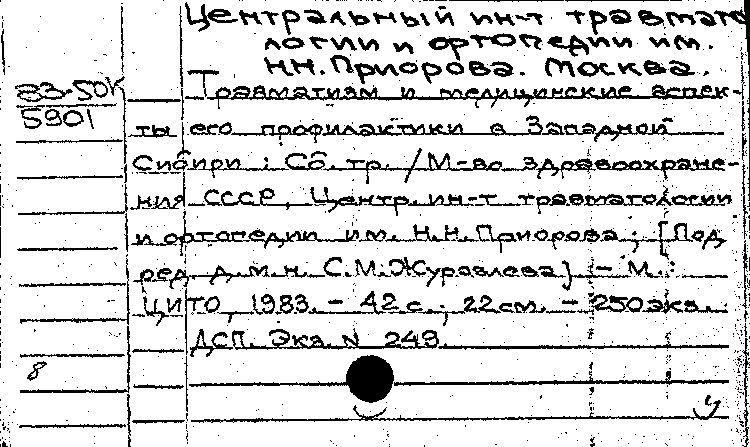 Центральный ин-т травмато
логии и ортопедии им.
Н.Н. Приорова. Москва.
83-50К
5901
Травматизм и медицинские аспек-
ты его профилактики в Западной
Сибири : Сб. тр. / М-во здравоохране-
ния СССР, Центр. ин-т травматологии
и ортопедии им. Н.Н. Приорова ; [Под
ред. д.м.н. С.М. Журавлева] – М. :
ЦИТО, 1983. – 42 с. ; 22 см. – 250 экз.
ДСП. Экз. N 249.
8